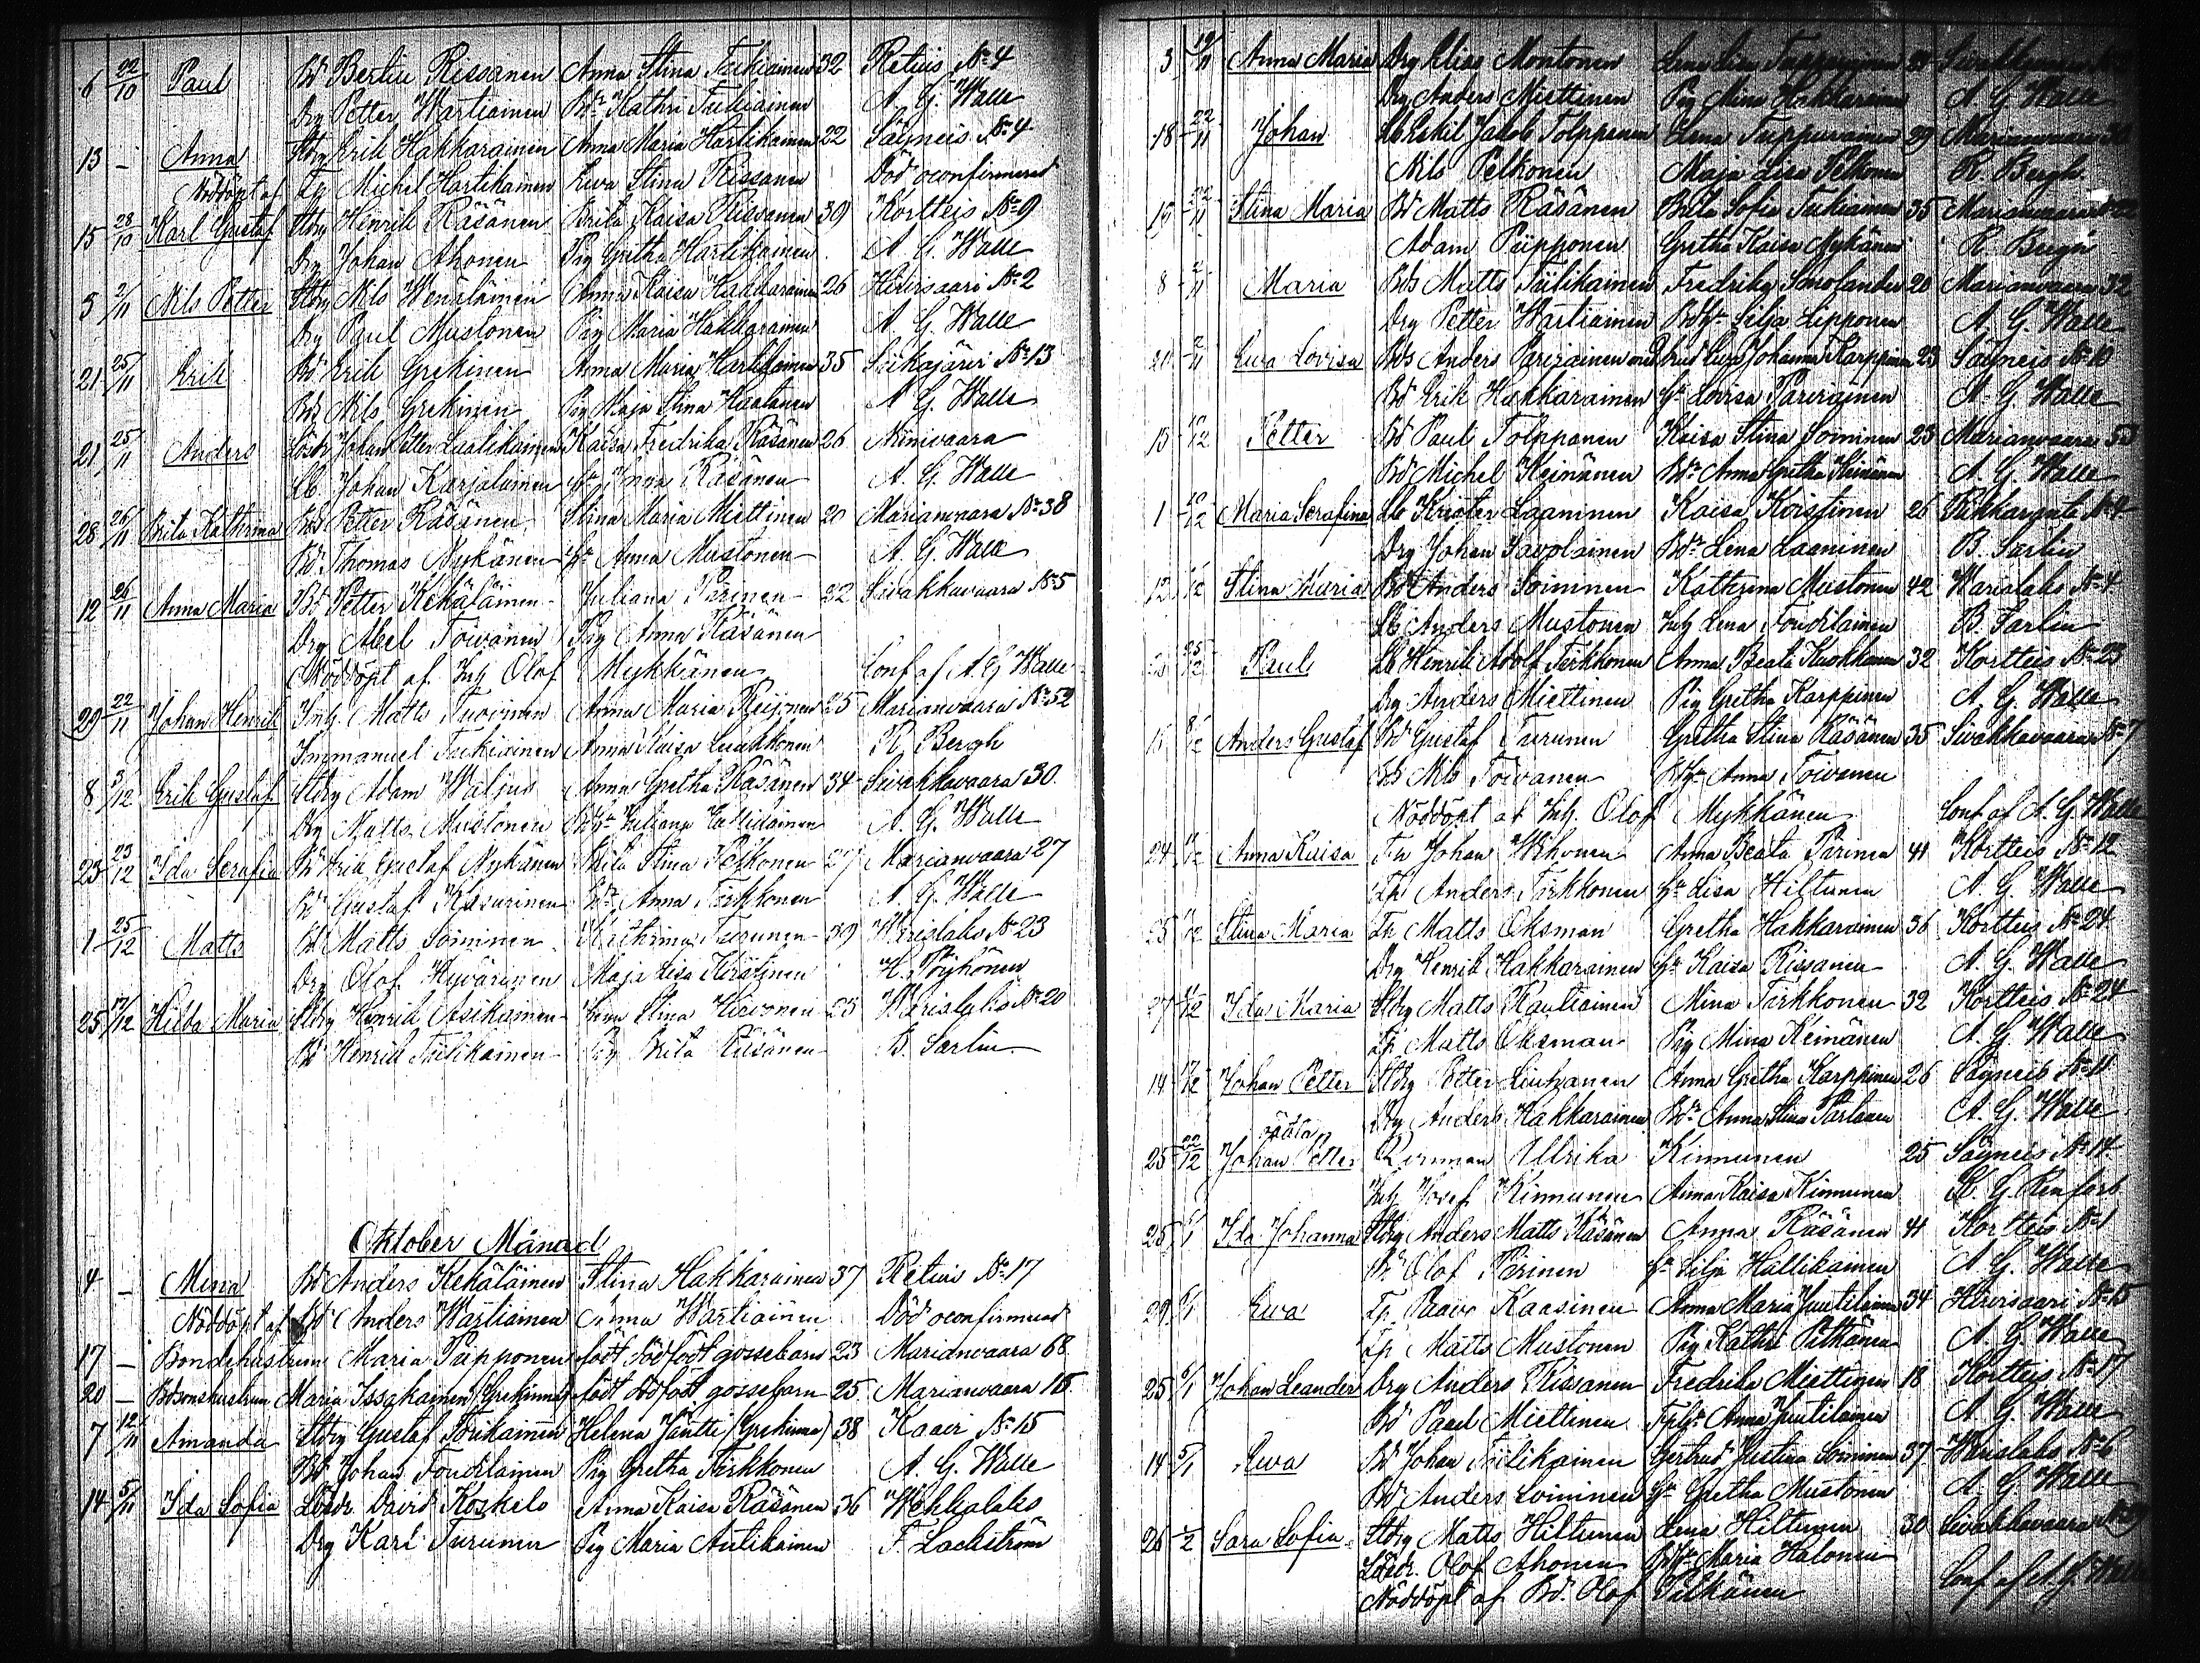 6 22/10 Paul Bd Bertil Rissanen Anna Stina Tukiainen 32 Retuis No 4
Drg Petter Wartiainen Bdr Kathri Tukiainen A. G. Walle
13 — Anna Stdrg Erik Hakkarainen Anna Maria Hartikainen 22 Säyneis No 4
Nöddöpt af Lp Michel Hartikainen Ewa Stina Rissanen Död oconfirmerad
15 28/10 Karl Gustaf Stdrg Henrik Räsänen Brita Kaisa Rissanen 39 Kortteis No 9
Drg Johan Ahonen Pig Gretha Hartikainen A. G. Walle
5 2/11 Nils Petter Stdrg Nils Wenäläinen Anna Kaisa Hakkarainen 26 Hirvisaari No 2
Drg Paul Mustonen Pig Maria Hakkarainen A. G. Walle
21 25/11 Erik Bd Erik Grekinen Anna Maria Hartikainen 35 Siikajärvi No 13
Bds Nils Grekinen Pig Maja Stina Haatanen A. G. Walle
21 25/11 Anders Lösdr Johan Petter Luatikainen Kaisa Fredrika Räsänen 26 Ninivaara
Lb. Johan Karjalainen Hr Anna Räsänen A. G. Walle
28 26/11 Brita Kathrina Bds Petter Räsänen Stina Maria Miettinen 20 Marianvaara No 38
Bd Thomas Nykänen Hr Anna Mustonen A. G. Walle
12 26/11 Anna Maria Bd Petter Kehäläinen Juliana Parinen 32 Sivakkavaara No 5
Drg Abel Toivanen Pig Anna Räsänen
Nöddöpt af Inh Olof Mykkänen Conf af A. G. Walle
29 22/11 Johan Henrik Inh. Matts Tuovinen Anna Maria Reijonen 25 Marianvaara No 52
Immanuel Tukiainen Anna Kaisa Luukkonen R. Bergh
8 3/12 Erik Gustaf Stdrg Adam Waljus Anna Gretha Räsänen 34 Sivakkavaara 30.
Drg Matts Mustonen Bdhr Juliana A. G. Walle
23 23/12 Ida Serafia Bd Erik Gustaf Nykänen Brita Stina Pelkonen 27 Marianvaara 27
Bd Gustaf Kasurinen Hr Anna Tirkkonen A. G. Walle
1 25/12 Matts Bd Matts Soininen Kathrina Turunen 39 Warislaks No 23
Drg Olof Hyvärinen Maja Lisa H. Pöyhönen
25 17/12 Hilda Maria Stdrg Henrik Asikainen Lena Stina Hirvonen 25 Warislaks No 20
Bd Henrik Tiilikainen Pig Brita Räsänen B. Sarlin
Oktober Månad
4 — Mina Bd Anders Kehäläinen Stina Hakkarainen 37 Retuis No 17
Nöddöpt af Bd Anders Wartiainen Anna Wartiainen Död oconfirmerad
17 — Bondehustrun Maria Piipponen födt dödfödt gossebarn 23 Marianvaara 68.
20 — Bdsonshustrun Maria Issakainen (Grekinna) födt dödfödt gossebarn 25. Marianvaara 18.
7 12/11 Amanda Stdrg Gustaf Torikainen Helena Jäntti (Grekinna) 38 Kaavi No 15
Bd Johan Toudilainen Pig Gretha Tirkkonen A. G. Walle
14 5/11 Ida Sofia Lösdr. David Koskelo Anna Kaisa Räsänen 36 Wehkalaks
Drg Karl Turunen Pig Maria Antikainen F. Lackström
3 19/11 Anna Maria Drg Elias Montonen Lena Lisa
Drg Anders Miettinen Pig Mina Hakkarainen A. G. Walle
18 22/11 Johan Lb Eskil Jakob Tolppanen Lena Tuppurainen 29 Marianvaara 30
Nils Pelkonen Maja Lisa Pelkonen R. Bergh
15 22/11 Stina Maria Bd Matts Räsänen Brita Sofia Tukiainen 35 Marianvaara
Adam Piipponen Gretha Kaisa Nykänen R. Bergh
8 2/11 Maria Bds Matts Tiilikainen Fredrika Smolander 20 Marianvaara 32
Drg Petter Wartiainen Bdhr Silja Lipponen A. G. Walle
20 2/11 Ewa Lovisa Bds Anders Parviainen brud Ewa Johanna Karppinen 23 Säyneis No 10
Bd Erik Hakkarainen Hr Lovisa Parviainen A. G. Walle
15 10/12 Petter Bd Paul Tolppanen Kaisa Stina Soininen 23 Marianvaara
Bd Michel Keinänen Bdr Anna Gretha Keinänen A. G. Walle
1 10/12 Maria Serafina Lb Krister Laaninen Kaisa Koistinen 26 No 4
Drg Johan Savolainen Bdr Lena Laaninen B. Sarlin
12 Stina Maria Bd Anders Soininen Kathrina Mustonen 42 Warislaks No 4
Lb Anders Mustonen Inh Lena Toudilainen B. Sarlin
25/12 Paul Lb Henrik Adolf Tirkkonen Anna Beata Kuokkanen 32 Kortteis No 23
Drg Anders Miettinen Pig Gretha Karppinen A. G. Walle
15 8/12 Anders Gustaf Bd Gustaf Turunen Gretha Stina Räsänen 35 Sivakkavaara No 7
Bds Nils Toivanen Bdhr Anna Toivanen
Nöddöpt af Inh. Olof Mykkänen Conf af A. G. Walle
24 Anna Kaisa Th Johan Wihonen Anna Beata Parinen 41 Kortteis No 12
Lp Anders Tirkkonen Hr Lisa Hiltunen A. G. Walle
25 Stina Maria Th Matts Oksman Gretha Hakkarainen 36 Kortteis No 24
Drg Henrik Hakkarainen Hr Kaisa Rissanen A. G. Walle
27 Ida Maria Stdrg Matts Rautiainen Mina Tirkkonen 32 Kortteis No 24
Lp Matts Oksman Pig Mina Keinänen A. G. Walle
14 Johan Petter Stdrg Petter Liukanen Anna Gretha Karppinen 26 Säyneis No 11
Drg Anders Hakkarainen Bdr Anna Stina Partanen A. G. Walle
oäkta
25 22/12 Johan Petter Qvinnan Ullrika Kinnunen 25 Säyneis No 14
Inh Josef Kinnunen Anna Kaisa Kinnunen K. G. Renfors
25 6/1 Ida Johanna Stdrg Anders Matts Räsänen Anna Räsänen 41 Kortteis No 1
Bd Olof Parinen Hr Silja Hallikainen A. G. Walle
29 6/1 Ewa Lp. Paavo Kaasinen Anna Maria Juutilainen 34 Hirvisaari No 15
Lp Matts Mustonen Pig Kathri Pitkänen A. G. Walle
25 6/1 Johan Leander Drg Anders Rissanen Fredrika Miettinen 18 Kortteis No 17
Bd Paul Miettinen Anna Juutilainen A. G. Walle
14 5/1 Ewa Bd Johan Tiilikainen Gertrud Justina Soininen 37 Warislaks No 6
Bd Anders Soininen Hr Gretha Mustonen A. G. Walle
26 1/2 Sara Sofia Stdrg Matts Hiltunen Lena Hiltunen 30 Sivakkavaara
Lösdr. Olof Ahonen Bdhr Maria Halonen
Nöddöpt af Bd. Olof Pitkänen Conf af A. G. Walle